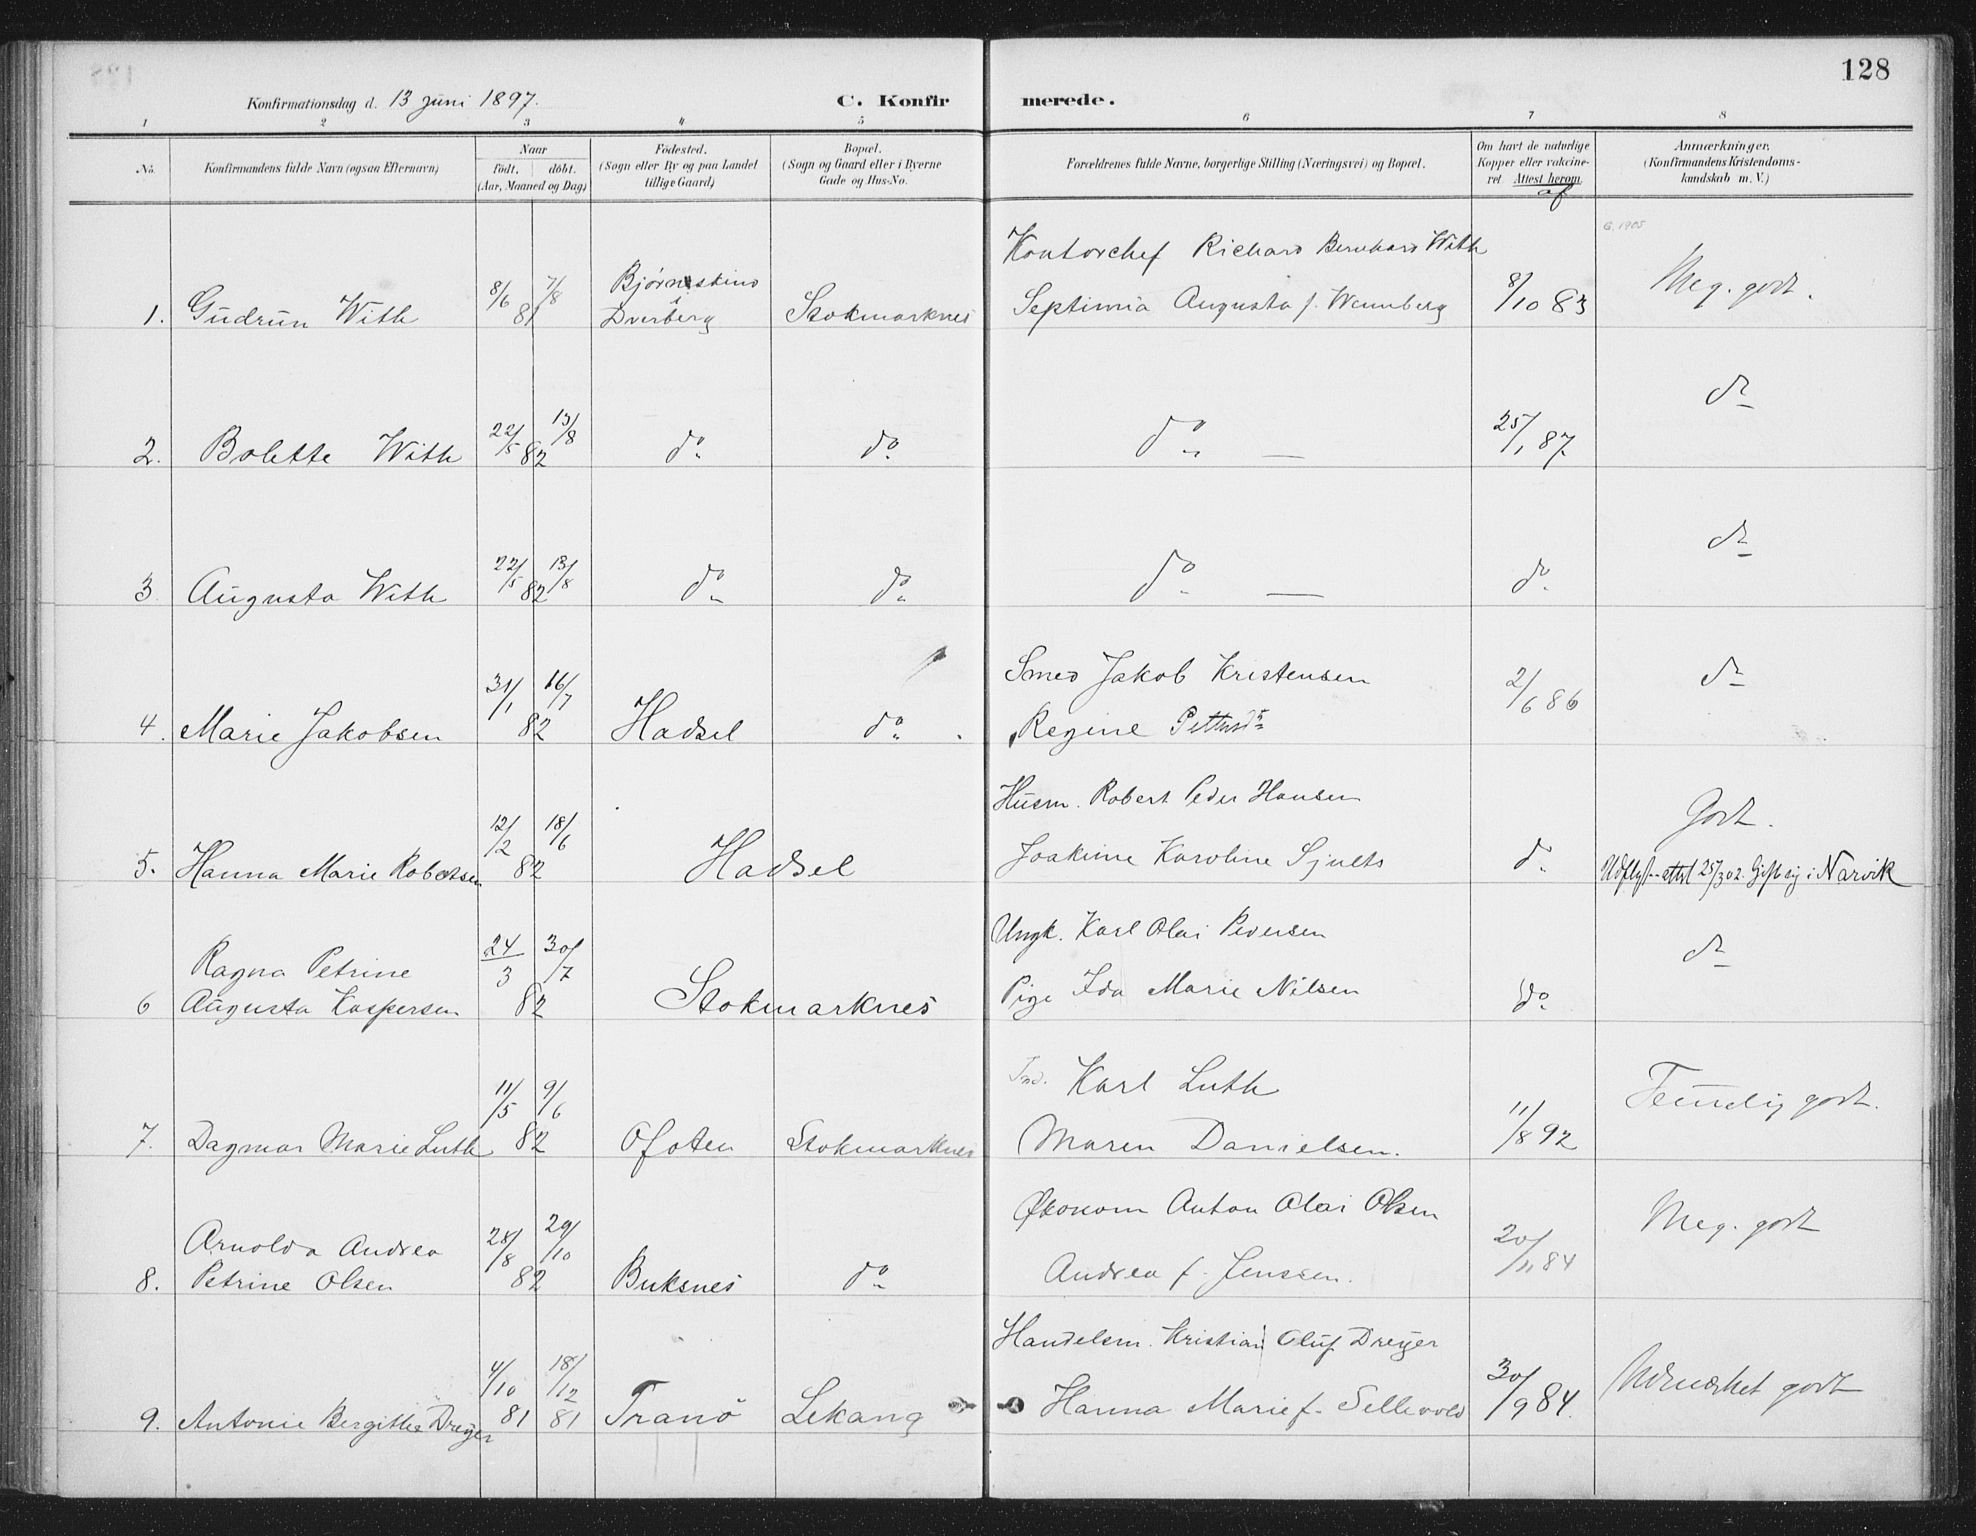 128
Konfirmationsdag d. 13 Juni 1897.
C. Konfirmerede.
1 2 3 4 5 6 7 8
No.
Konfirmandens fulde Navn (ogsaa Efternavn)
Naar
født. døbt.
(Aar, Maaned og Dag)
Födested.
(Sogn eller By og paa Landet
tillige Gaard)
Bopæl.
(Sogn og Gaard eller i Byerne
Gade og Hus-No.
Forældrenes fulde Navne, borgerlige Stilling (Næringsvei) og Bopæl.
Om havt de naturlige
Kopper eller vakcine-
ret Attest herom
af
Anmærkninger.
(Konfirmandens Kristendoms-
kundskab m. V.)
G. 1905
1. Gudrun With 8/6 7/8 81 Bjørnskind i Dverberg Stokmarknes
Kontorchef Richard Bernhard With
Septimia Augusta f. Wennberg 8/10 83 Meg. godt.
2. Bolette With 22/5 13/8 82 do do do — 25/1 87. do
3 Augusta With 22/5 13/8 82 do do do — do do
4. Marie Jakobsen 31/1 16/7 82 Hadsel do
Smed Jakob Kristensen
Regine Pettersdr 2/6 86 do
5. Hanna Marie Robertsen 12/2 18/6 82 Hadsel
Husm. Robert Peder Hansen
Joakime Karoline do Godt.
Udflyt-attest 25/3 02. Gift sig i Narvik
Ragna Petrine
6 Augusta Kaspersen 24/3 30/7 82 Stokmarknes
Ungk. Karl Olai Pedersen
Pige Ida Marie Nilsen do do
7. Dagmar Marie Luth 11/5 9/6 82 Ofoten Stokmarknes
Ind. Karl Luth
Maren Danielsen. 11/8 92 Temmelig godt.
Arnolda Andrea
8. Petrine Olsen 28/8 29/10 82 Buksnes do
Økonom Anton Olai Olsen
Andrea f. Jenssen. 20/11 84 Meg. godt
9. Antonie Bergitte Dreyer 4/10 81 18/12 81 Tranö Lekang
Handelsm. Kristian Oluf Dreyer
Hanna Marie f. Sellevold 30/9 84. Udmerket godt